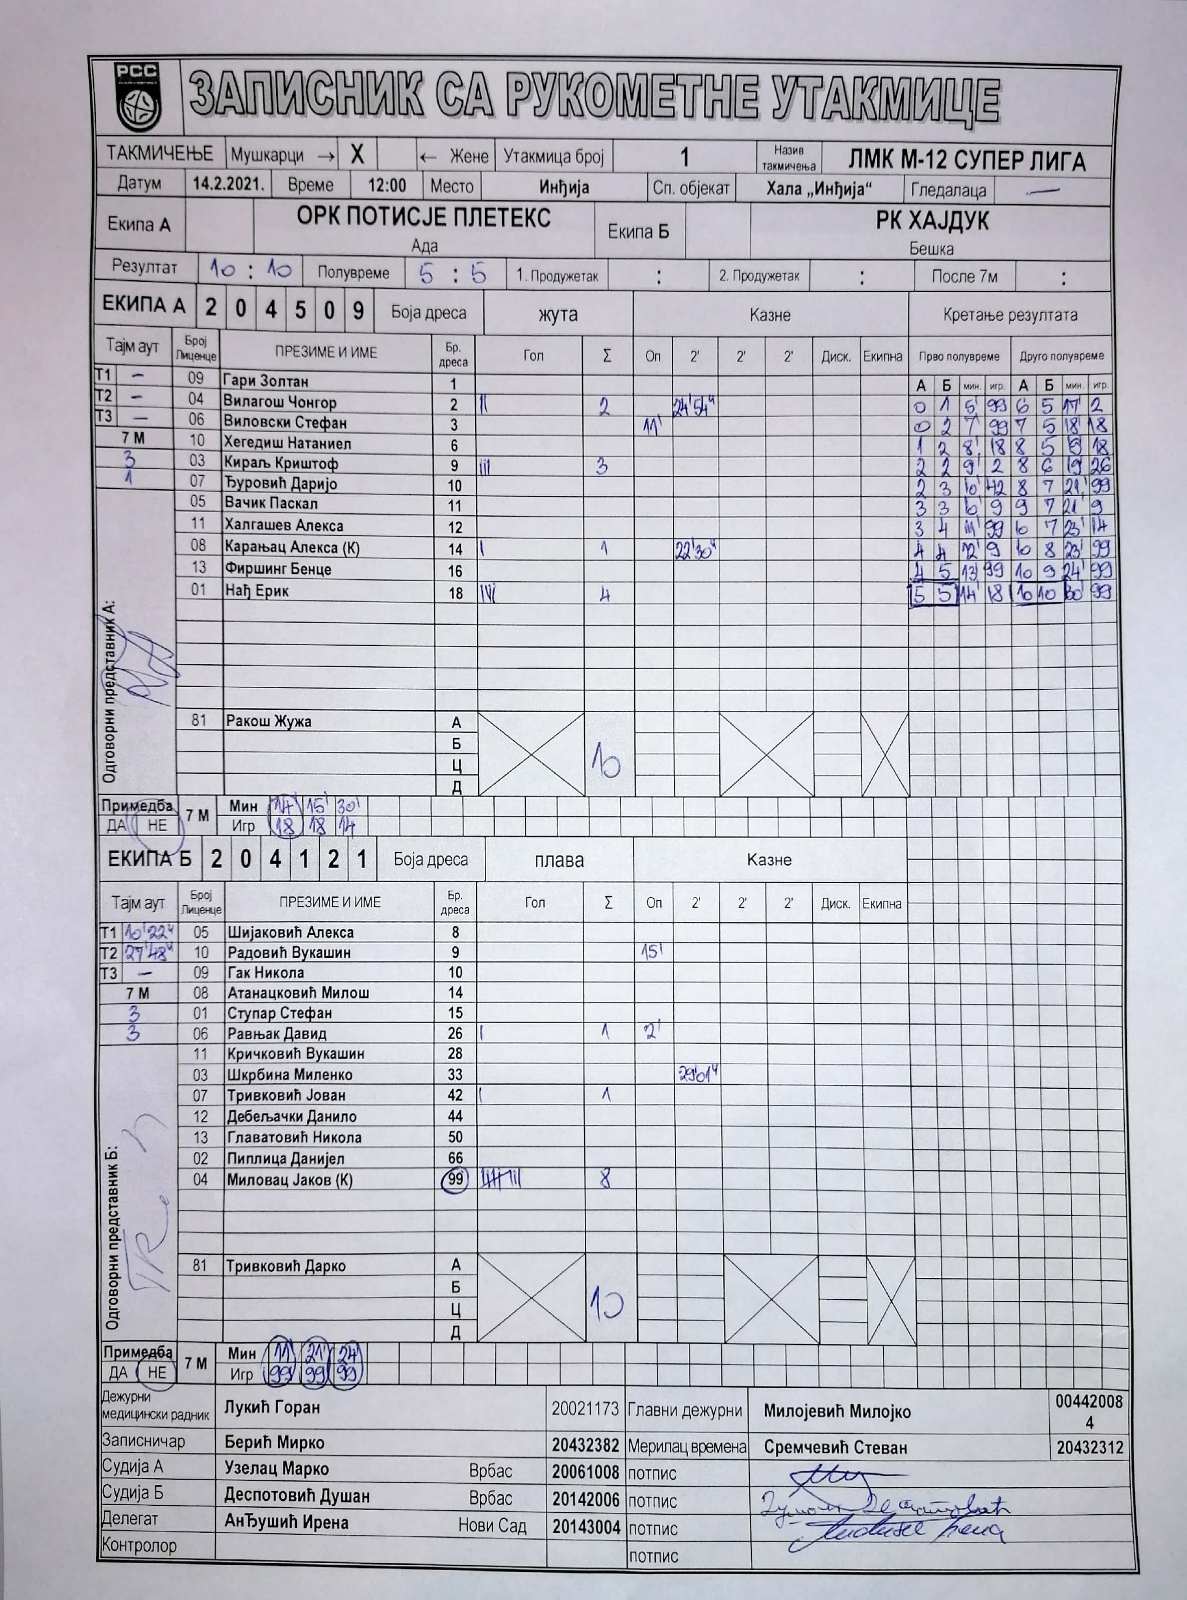 РСС
ЗАПИСНИК СА РУКОМЕТНЕ УТАКМИЦЕ
ТАКМИЧЕЊЕ Мушкарци → X ← Жене Утакмица број 1 Назив такмичења ЛМК М-12 СУПЕР ЛИГА
Датум 14.2.2021. Време 12:00 Место Инђија Сп. објекат Хала „Инђија“ Гледалаца —
Екипа А ОРК ПОТИСЈЕ ПЛЕТЕКС Екипа Б РК ХАЈДУК
Ада Бешка
Резултат 10 : 10 Полувреме 5 : 5 1. Продужетак : 2. Продужетак : После 7м :
ЕКИПА А 2 0 4 5 0 9 Боја дреса жута Казне Кретање резултата
Тајм аут Број Лиценце ПРЕЗИМЕ И ИМЕ Бр. дреса Гол Σ Оп 2' 2' 2' Диск. Екипна Прво полувреме Друго полувреме
Т1 — 09 Гари Золтан 1 А Б мин. игр. А Б мин. игр.
Т2 — 04 Вилагош Чонгор 2 || 2 24'54" 0 1 5' 99 6 5 17' 2
Т3 — 06 Виловски Стефан 3 11' 0 2 7' 99 7 5 18' 18
7 М 10 Хегедиш Натаниел 6 1 2 8' 18 8 5 18
3 03 Кираљ Криштоф 9 ||| 3 2 2 9' 2 8 6 19 26
1 07 Ђуровић Даријо 10 2 3 10' 42 8 7 21' 99
05 Вачик Паскал 11 3 3 9 9 7 21' 9
11 Халгашев Алекса 12 3 4 11' 99 10 7 23' 14
08 Карањац Алекса (К) 14 | 1 22'30" 4 4 12' 9 10 8 23' 99
13 Фиршинг Бенце 16 4 5 13' 99 10 9 24' 99
01 Нађ Ерик 18 |||| 4 5 5 14' 18 10 10 30' 99
Одговорни представник А:
81 Ракош Жужа А
Б
10
Ц
Д
Примедба ДА НЕ 7 М Мин 14' 15' 30'
Игр 18 18 14
ЕКИПА Б 2 0 4 1 2 1 Боја дреса плава Казне
Тајм аут Број Лиценце ПРЕЗИМЕ И ИМЕ Бр. дреса Гол Σ Оп 2' 2' 2' Диск. Екипна
Т1 10'22" 05 Шијаковић Алекса 8
Т2 27'48" 10 Радовић Вукашин 9 15'
Т3 — 09 Гак Никола 10
7 М 08 Атанацковић Милош 14
3 01 Ступар Стефан 15
3 06 Равњак Давид 26 | 1 2'
11 Кричковић Вукашин 28
03 Шкрбина Миленко 33 29'01"
07 Тривковић Јован 42 | 1
12 Дебељачки Данило 44
13 Главатовић Никола 50
02 Пиплица Данијел 66
04 Миловац Јаков (К) 99 |||| ||| 8
Одговорни представник Б:
81 Тривковић Дарко А
Б
10
Ц
Д
Примедба ДА НЕ 7 М Мин 11' 21' 24'
Игр 99 99 99
Дежурни медицински радник Лукић Горан 20021173 Главни дежурни Милојевић Милојко 004420084
Записничар Берић Мирко 20432382 Мерилац времена Сремчевић Стеван 20432312
Судија А Узелац Марко Врбас 20061008 потпис
Судија Б Деспотовић Душан Врбас 20142006 потпис
Делегат АнЂушић Ирена Нови Сад 20143004 потпис
Контролор потпис